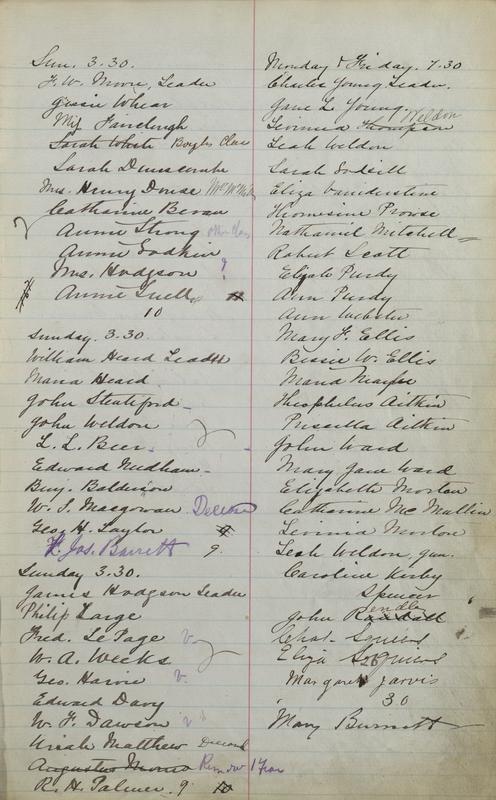 Sun. 3.30.
F. W. Moore, Leader
Jessie Whear
Miss Fairclough
Sarah White Boyles Class
Sarah Dunscombe
Mrs. Henry Douse
Catharine Bevan
Annie Strong other class
Annie Godkin
Mrs. Hodgson ?
Annie Snell
10
Sunday. 3.30.
William Heard Leader
Maria Heard
John Stentiford
John Weldon
L. L. Beer
Edward Needham
Benj. Balderson
W. S. Macgowan
Geo. H. Taylor 9
F. Jos. Barrett 9
Sunday 3.30.
James Hodgson Leader
Philip Large
Fred. LePage v.
W. A. Weeks
Geo. Harvie v.
Edward Davy
W. F. Dawson v
Uriah Matthew
Augustus Remov 1 Year
R. H. Palmer. 9 10
Monday & Friday. 7.30
Charles Young Leader.
Jane L. Young.
Levinia Thompson Weldon
Leah Weldon
Sarah
Eliza Vaniderstine
Thomesine Prowse
Nathaniel Mitchell
Robert Scott
Elizab Purdy
Ann Purdy
Ann Webster
Mary F. Ellis
Bessie W. Ellis
Maria
Theophelus Aitkin
Priscilla Aitkin
John Ward
Mary Jane Ward
Elizabeth Morton
Catharine McMullin
Levinia Morton
Leah Weldon, jun.
Caroline Kirby
Spencer
John Randall Lendle
Chas.
Eliza
Margaret Jarvis
30
Mary Burnett